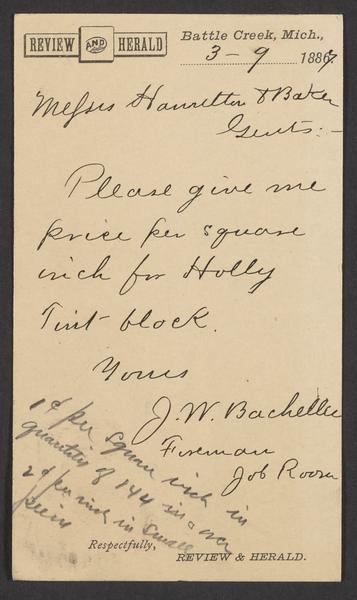 REVIEW AND HERALD
Battle Creek, Mich.,
3-9 1887
Messrs Hamilton & Baker
Gents:-
Please give me
price per square
inch for Holly
Tint block.
Yours
J. W. Bacheller
Foreman
Job Room
1¢ per square inch in
quantities of 144 in or over
2¢ per inch in small
Respectfully,
REVIEW & HERALD.